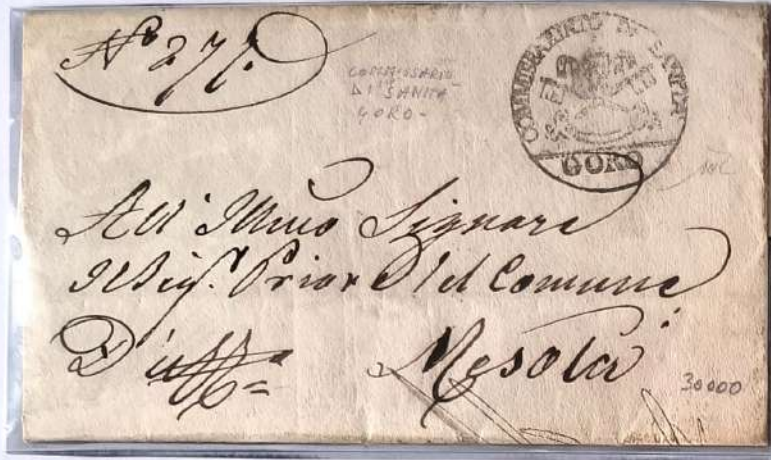 N° 277.
COMMISSARIO
DI SANITA
GORO -
COMMISSARIATO DI SANITA
GORO
All' Illmo Signore
Il Sig.r Priore del Comune
Di Mesola
30000